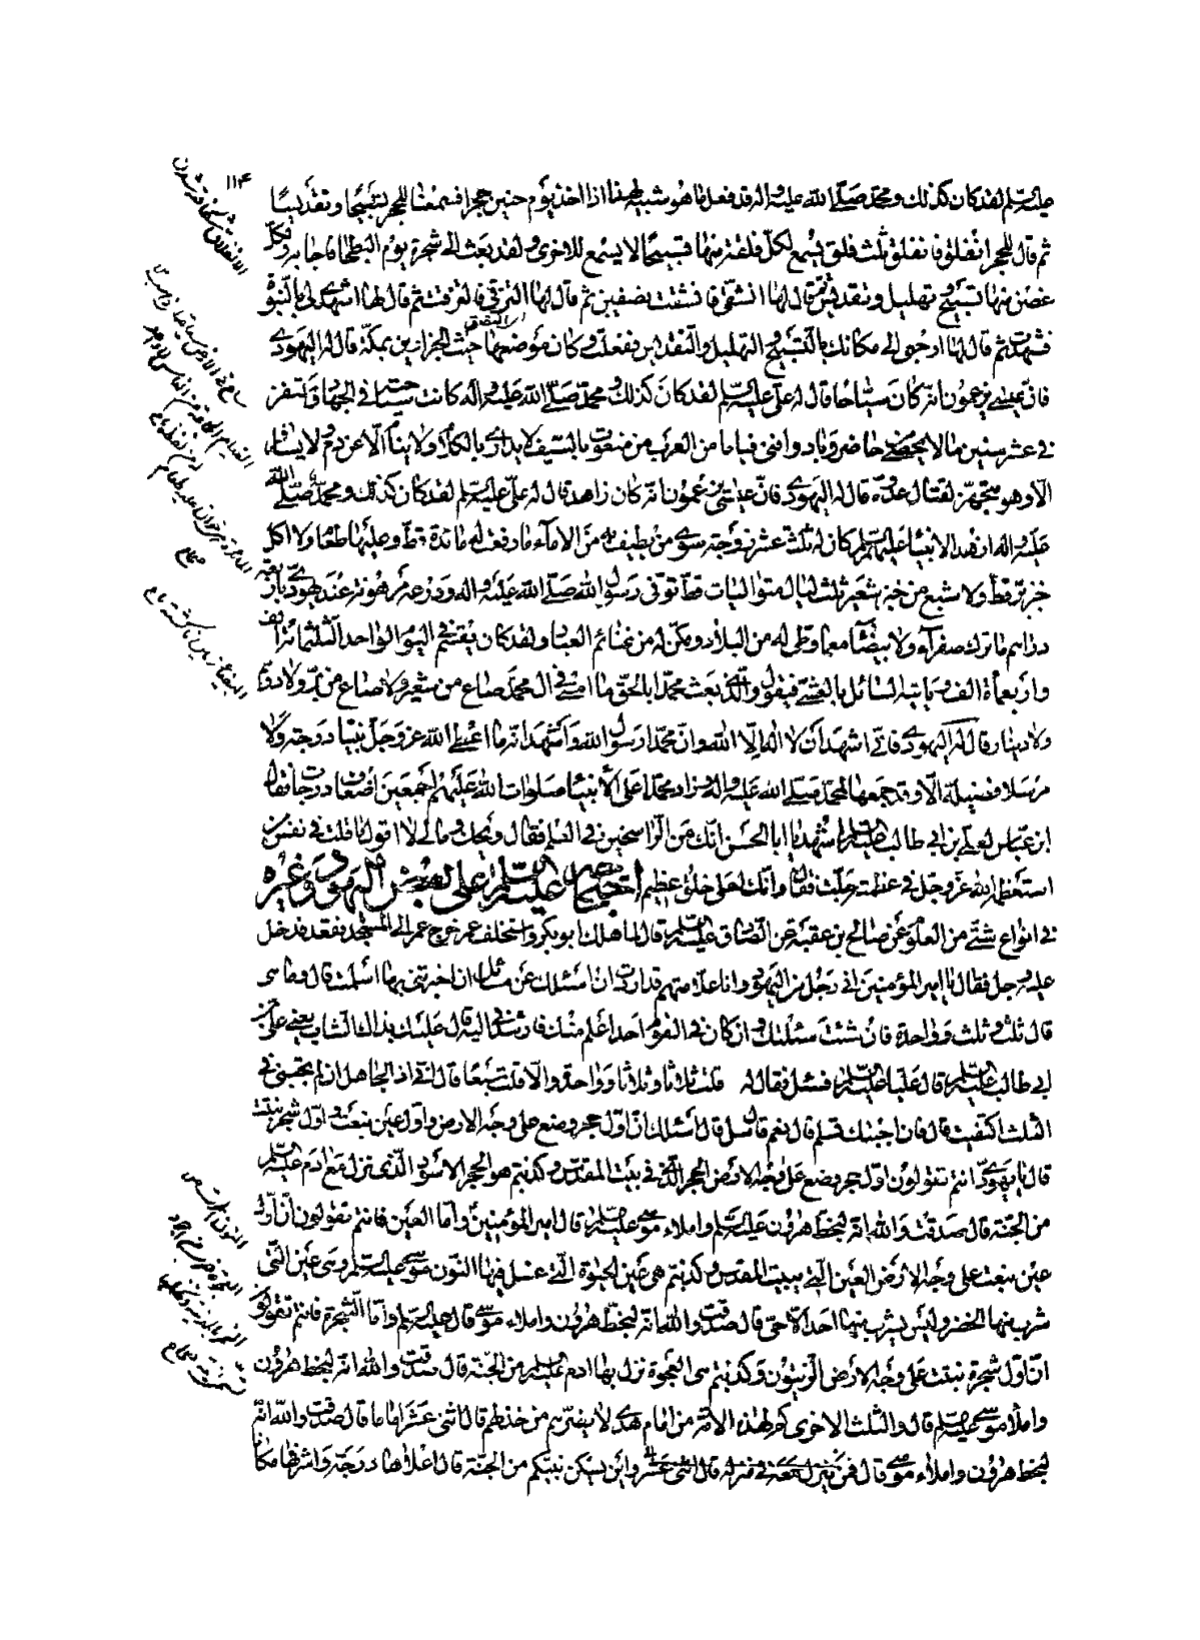 ١١٤
عليه السلام لقد كان كذلك ومحمد صلى الله عليه واله قد فعل ما هو شبيه بهذا اذ اخذ يوم حنين حجرا فسمعنا للحجر تسبيحا وتقديسا
ثم قال للحجر انفلق فانفلق ثلث فلق يسمع لكل فلقة منها تسبيحا لا يسمع للاخرى ولقد بعث الى شجرة يوم البطحاء فاجابته ولكل
غصن منها تسبيح وتهليل وتقديس ثم قال لها انشقي فانشقت نصفين ثم قال لها التزقي فالتزقت ثم قال لها اشهدي لي بالنبوة
فشهدت ثم قال لها ارجعي الى مكانك بالتسبيح والتهليل والتقديس ففعلت وكان موضعها حيث الجزارين بمكة قال له اليهودي
فان عيسى يزعمون انه كان سياحا قال له علي عليه السلام لقد كان كذلك ومحمد صلى الله عليه واله كانت سياحته في الجهاد فاستنفر
في عشر سنين ما لا يحصى من حاضر وباد وافنى فياما من العرب من منعوت بالسيف لا يداري بالكلام ولا ينام الا عن دم ولا يسافر
الا وهو متجهز لقتال عدوه قال له اليهودي فان عيسى يزعمون انه كان زاهدا قال له علي عليه السلام لقد كان كذلك ومحمد صلى الله
عليه واله ازهد الانبياء عليهم السلام كان له ثلث عشر زوجة سوى من يطيف به من الاماء ما رفعت له مائدة قط وعليها طعام ولا اكل
خبز بر قط ولا شبع من خبز شعير ثلث ليال متواليات قط توفي رسول الله صلى الله عليه واله ودرعه مرهونة عند يهودي باربعة
دراهم ما ترك صفراء ولا بيضاء مع ما وطئ له من البلاد ومكن له من غنائم العباد ولقد كان يقسم في اليوم الواحد الثلثمائة الف
واربعمائة الف وياتيه السائل بالعشي فيقول والذي بعث محمدا بالحق ما امسى في ال محمد صاع من شعير ولا صاع من بر ولا درهم
ولا دينار قال له اليهودي فاني اشهد ان لا اله الا الله وان محمدا رسول الله واشهد انه ما اعطى الله عز وجل نبيا درجة ولا
مرسلا فضيلة الا وقد جمعها لمحمد صلى الله عليه واله وزاد محمدا على الانبياء صلوات الله عليهم اجمعين اضعاف درجات فقال
ابن عباس لعلي بن ابي طالب عليه السلام اشهد يا ابا الحسن انك من الراسخين في العلم فقال ويحك وما لي لا اقول ما قلت في نفس من
استعظمه الله عز وجل في عظمته جلت فقال وانك لعلى خلق عظيم احتجاجه عليه السلام على بعض اليهود وغيره
في انواع شتى من العلوم عن صالح بن عقبة عن الصادق عليه السلام قال لما هلك ابو بكر واستخلف عمر خرج عمر الى المسجد فقعد فدخل
عليه رجل فقال يا امير المؤمنين اني رجل من اليهود وانا علامتهم قد اردت ان اسئلك عن مسائل ان اخبرتني بها اسلمت قال وما هي
قال ثلث وثلث وواحدة فان شئت سئلتك وان كان في القوم احد اعلم منك فارشدني اليه قال عليك بذاك الشاب يعني علي بن
ابي طالب عليه السلام قال عليا عليه السلام فسئله فقال له قلت ثلاثا وثلاثا وواحدة والا قلت سبعا قال اني اذا لجاهل ان لم تجبني في
الثلث اكتفيت قال فان اجبتك تسلم قال نعم قال سل قال اسئلك ان اول حجر وضع على وجه الارض واول عين نبعت واول شجر نبتت
قال يا يهودي انتم تقولون اول حجر وضع على وجه الارض الحجر الذي في بيت المقدس وكذبتم هو الحجر الاسود الذي نزل مع ادم عليه السلام
من الجنة قال صدقت والله انه لبخط هرون عليه السلام واملاء موسى عليه السلام قال امير المؤمنين واما العين فانتم تقولون ان اول
عين نبعت على وجه الارض العين التي ببيت المقدس وكذبتم هي عين الحيوة التي غسل فيها النون موسى عليه السلام وهي عين التي
شرب منها الخضر وليس يشرب منها احد الا حي قال صدقت والله انه لبخط هرون واملاء موسى قال عليه السلام واما الشجرة فانتم تقولون
ان اول شجرة نبتت على وجه الارض الزيتون وكذبتم هي العجوة نزل بها ادم عليه السلام من الجنة قال صدقت والله انه لبخط هرون
واملاء موسى عليه السلام قال والثلث الاخرى كم لهذه الامة من امام هدى لا يضرهم من خذلهم قال اثني عشر اماما قال صدقت والله انه
لبخط هرون واملاء موسى قال فمن ينزل معه في منزله قال اثنى عشر واين يسكن نبيكم من الجنة قال اعلاها درجة واشرفها مكانا